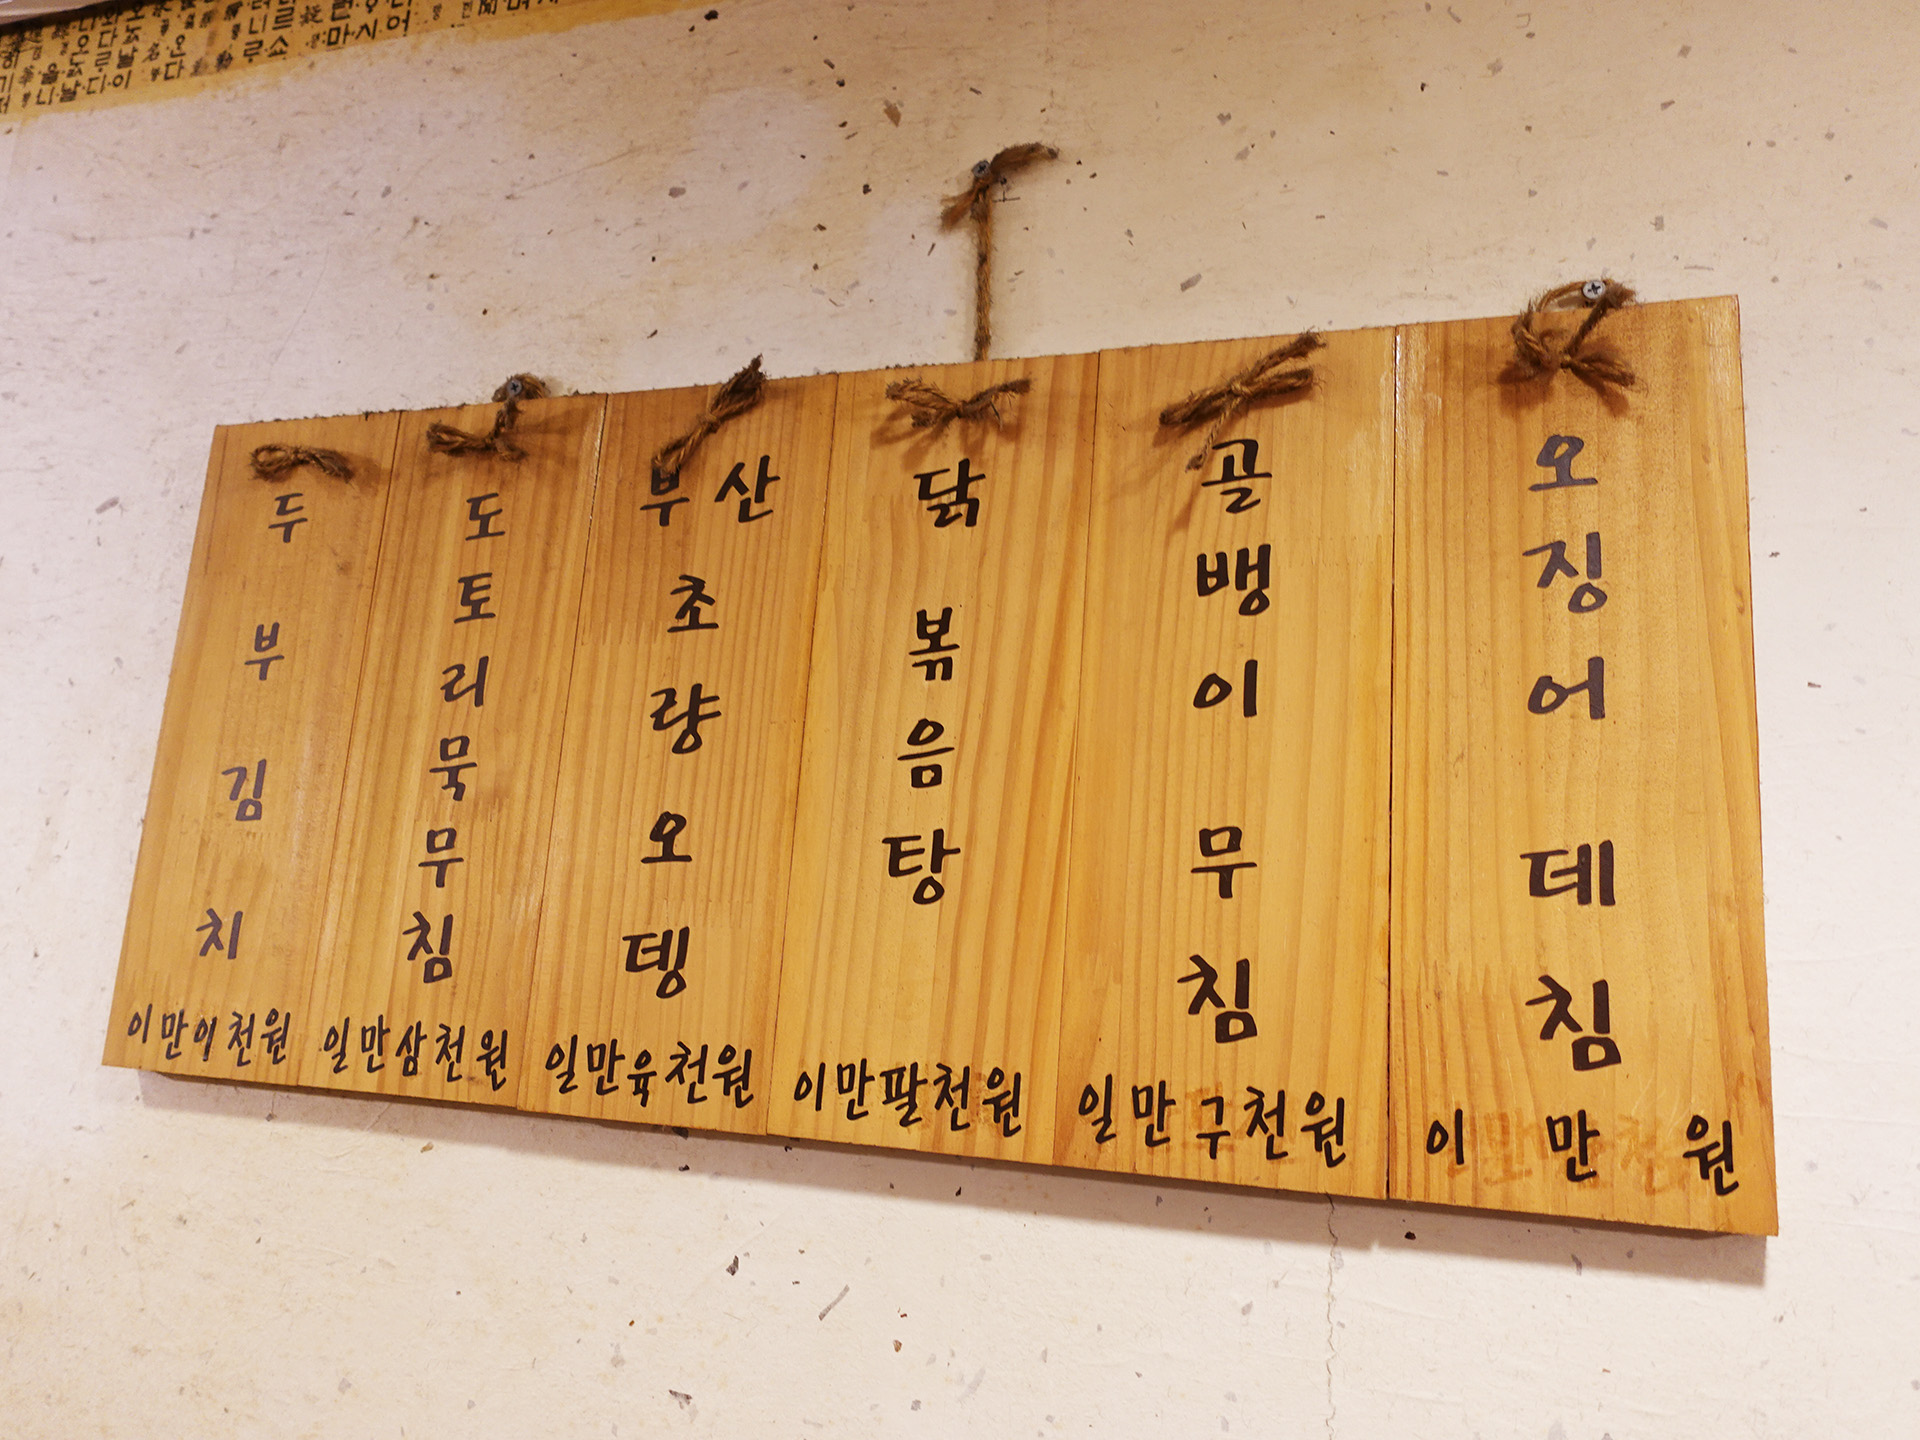 두부김치
이만이천원
도토리묵무침
일만삼천원
부산
초량오뎅
일만육천원
닭볶음탕
이만팔천원
골뱅이무침
일만구천원
오징어데침
이만 원